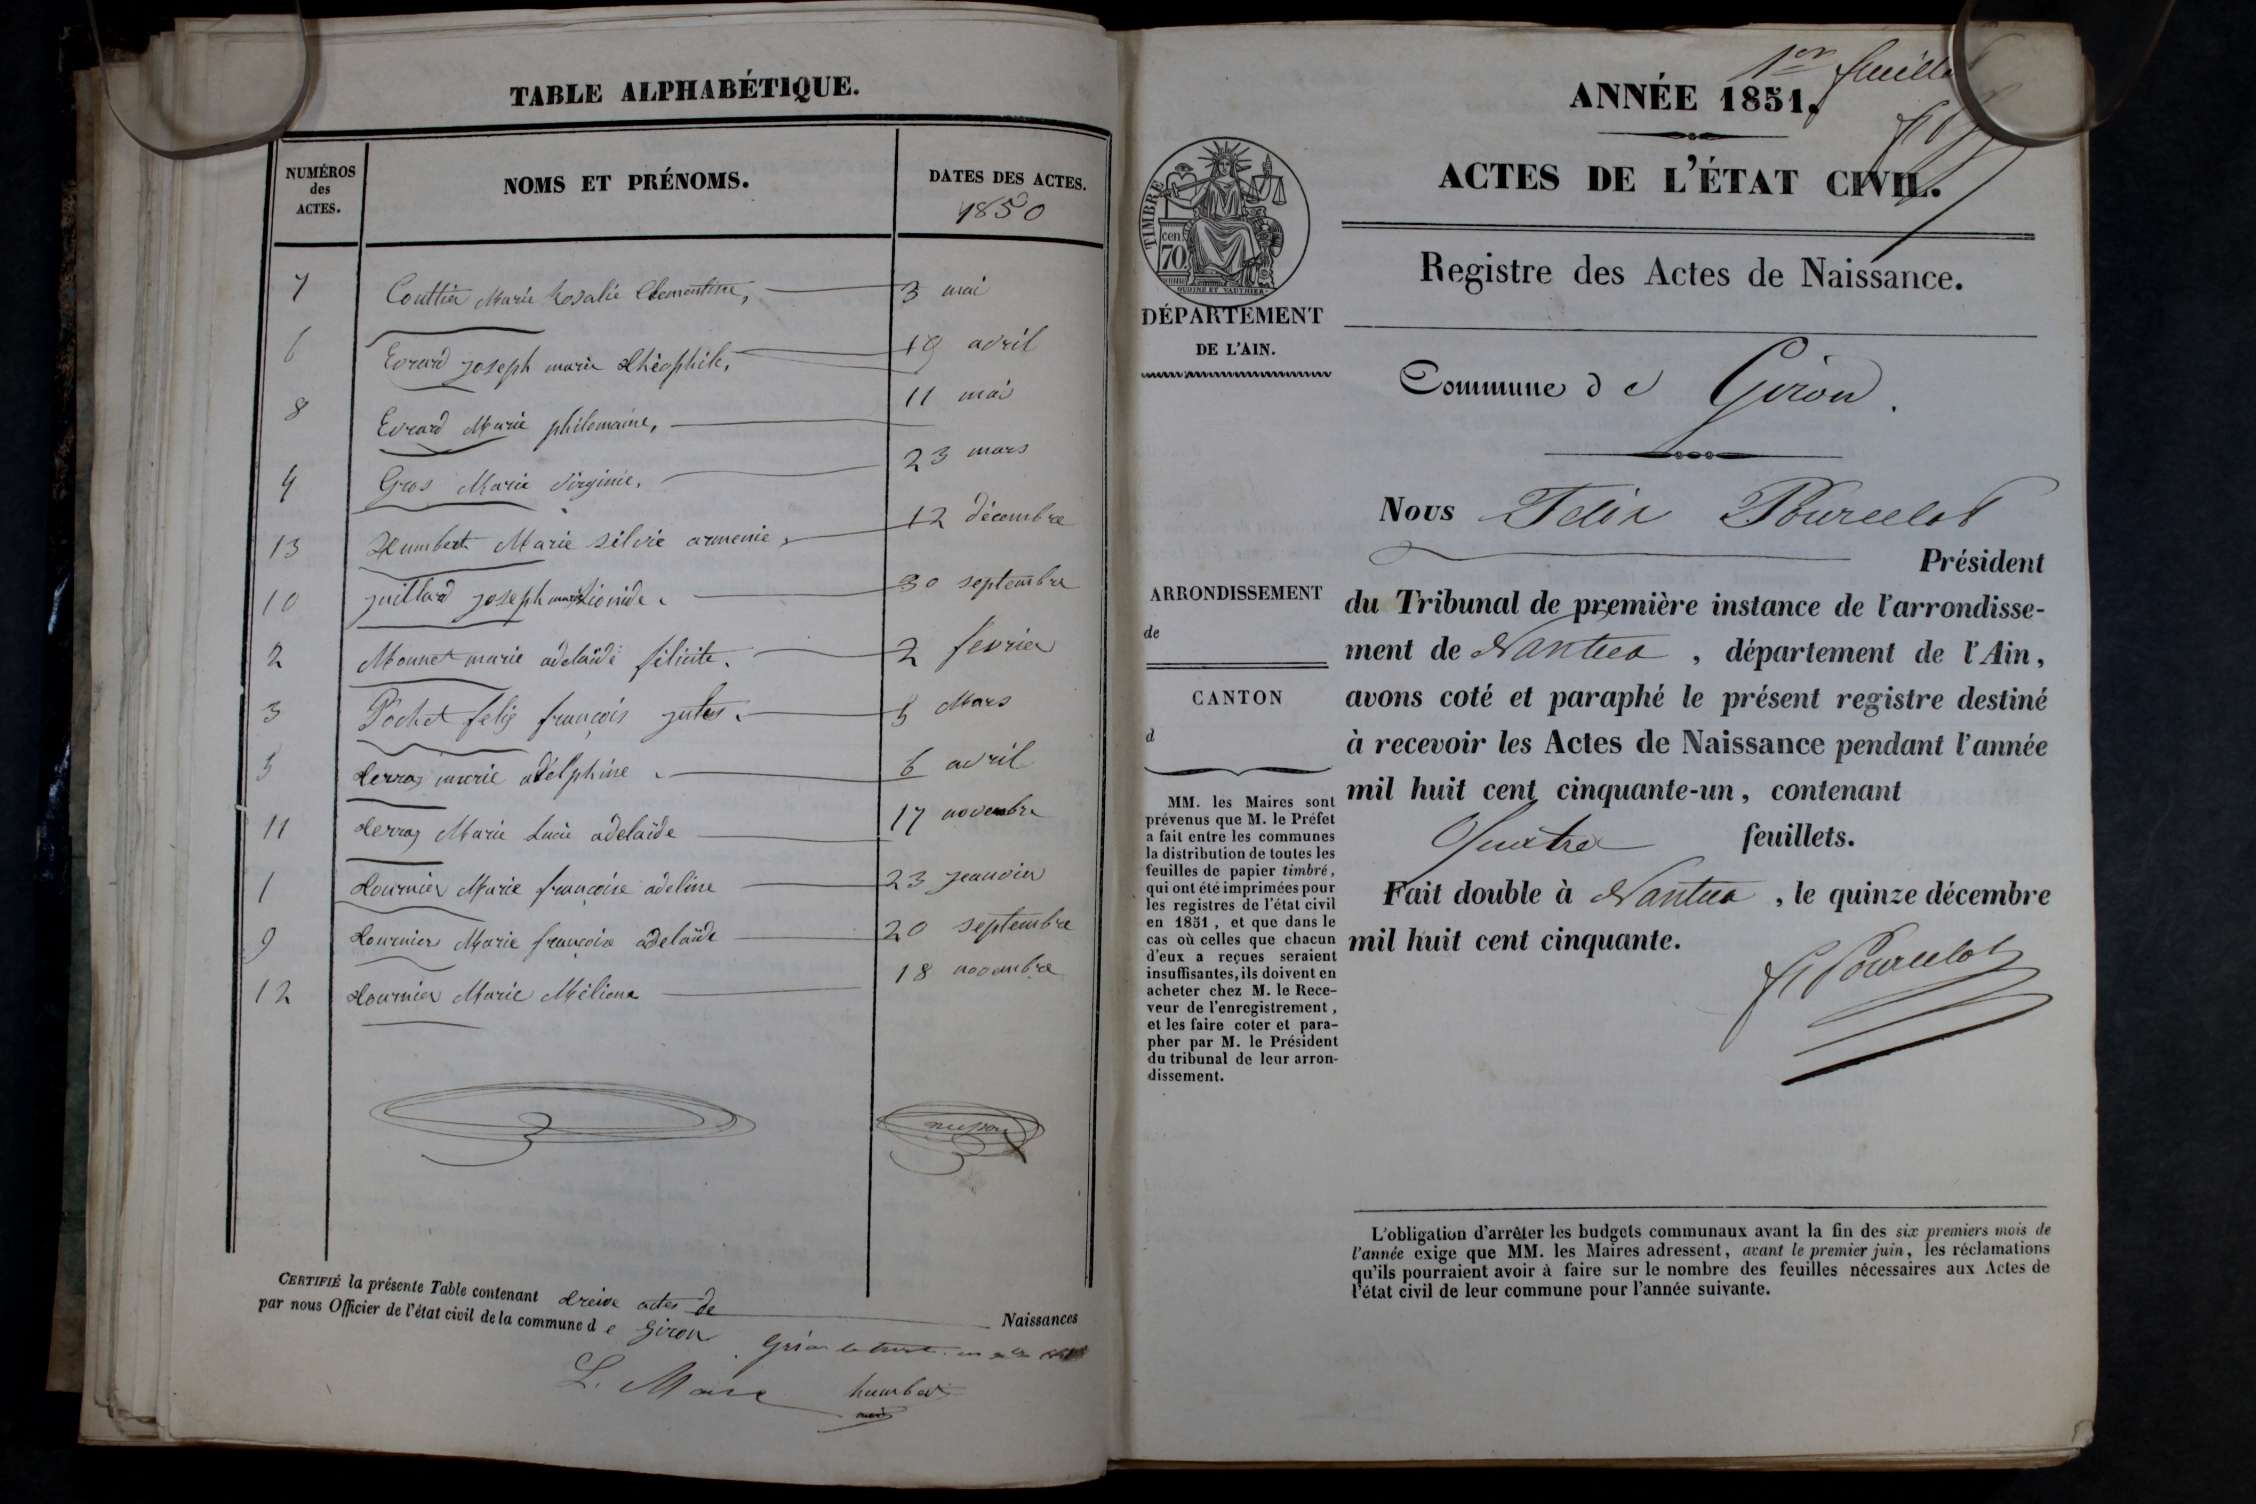 TABLE ALPHABÉTIQUE.
NUMÉROS
des
ACTES.
NOMS ET PRÉNOMS.
DATES DES ACTES.
1850
7 Couttier Marie Rosalie Clementine, 3 mai
6 Evrard joseph marie théophile, 19 avril
8 Evrard Marie philomaine, 11 mai
4 Gros Marie Virginie. 23 mars
13 Humbert Marie silvie armenie, 12 décembre
10 juillard joseph marie 30 septembre
2 Monnet marie adelaïde félicité. 2 fevrier
3 Pochet felix françois jules. 5 Mars
5 terraz marie adelphine. 6 avril
11 terraz Marie Lucie adelaïde 17 novembre
1 tournier Marie françoise adeline 23 jeanvier
9 tournier Marie françoise adelaïde 20 septembre
12 tournier Marie Méliona 18 novembre
CERTIFIÉ la présente Table contenant treize actes de Naissances
par nous Officier de l'état civil de la commune de Giron
L. Maire humbert
1er feuillet
ANNÉE 1851.
ACTES DE L'ÉTAT CIVIL.
TIMBRE
cen.
70.
OUDINÉ ET VAUTHIER.
Registre des Actes de Naissance.
DÉPARTEMENT
DE L'AIN.
Commune de Giron.
Nous Félix Pourcelot
Président
ARRONDISSEMENT
de
CANTON
d
du Tribunal de première instance de l'arrondisse-
ment de Nantua, département de l'Ain,
avons coté et paraphé le présent registre destiné
à recevoir les Actes de Naissance pendant l'année
mil huit cent cinquante-un, contenant
Quatre feuillets.
Fait double à Nantua, le quinze décembre
mil huit cent cinquante.
f Pourcelot
MM. les Maires sont
prévenus que M. le Préfet
a fait entre les communes
la distribution de toutes les
feuilles de papier timbré,
qui ont été imprimées pour
les registres de l'état civil
en 1851, et que dans le
cas où celles que chacun
d'eux a reçues seraient
insuffisantes, ils doivent en
acheter chez M. le Rece-
veur de l'enregistrement,
et les faire coter et para-
pher par M. le Président
du tribunal de leur arron-
dissement.
L'obligation d'arrêter les budgets communaux avant la fin des six premiers mois de
l'année exige que MM. les Maires adressent, avant le premier juin, les réclamations
qu'ils pourraient avoir à faire sur le nombre des feuilles nécessaires aux Actes de
l'état civil de leur commune pour l'année suivante.